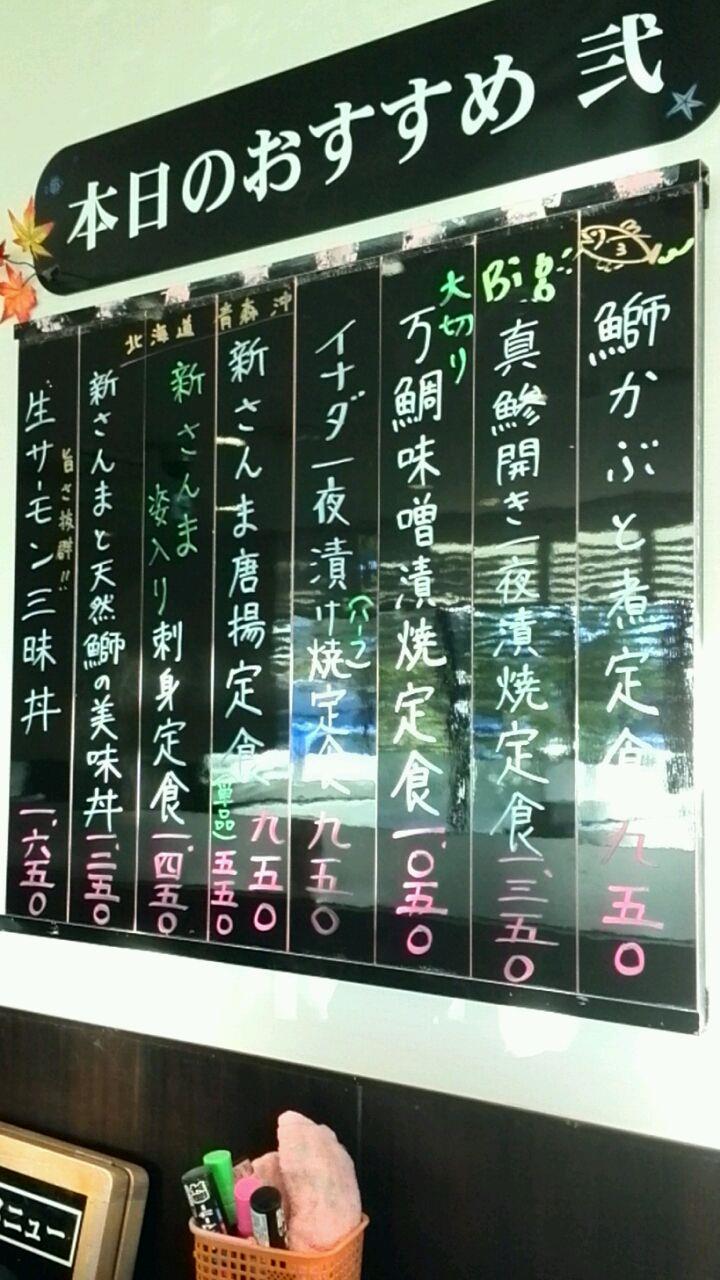 本日のおすすめ 弐
鰤かぶと煮定食 九五〇
Big!! 真鯵開き一夜漬焼定食 一、三五〇
大切り
万鯛味噌漬焼定食 一、〇五〇
イナダ一夜漬け焼定食 九五〇
(ハーフ)
青森沖
新さんま唐揚定食 九五〇
(単品) 五五〇
北海道
新さんま姿入り刺身定食 一、四五〇
新さんまと天然鰤の美味丼 一、二五〇
旨さ抜群!!
生サーモン三昧丼 一、六五〇
ニュー